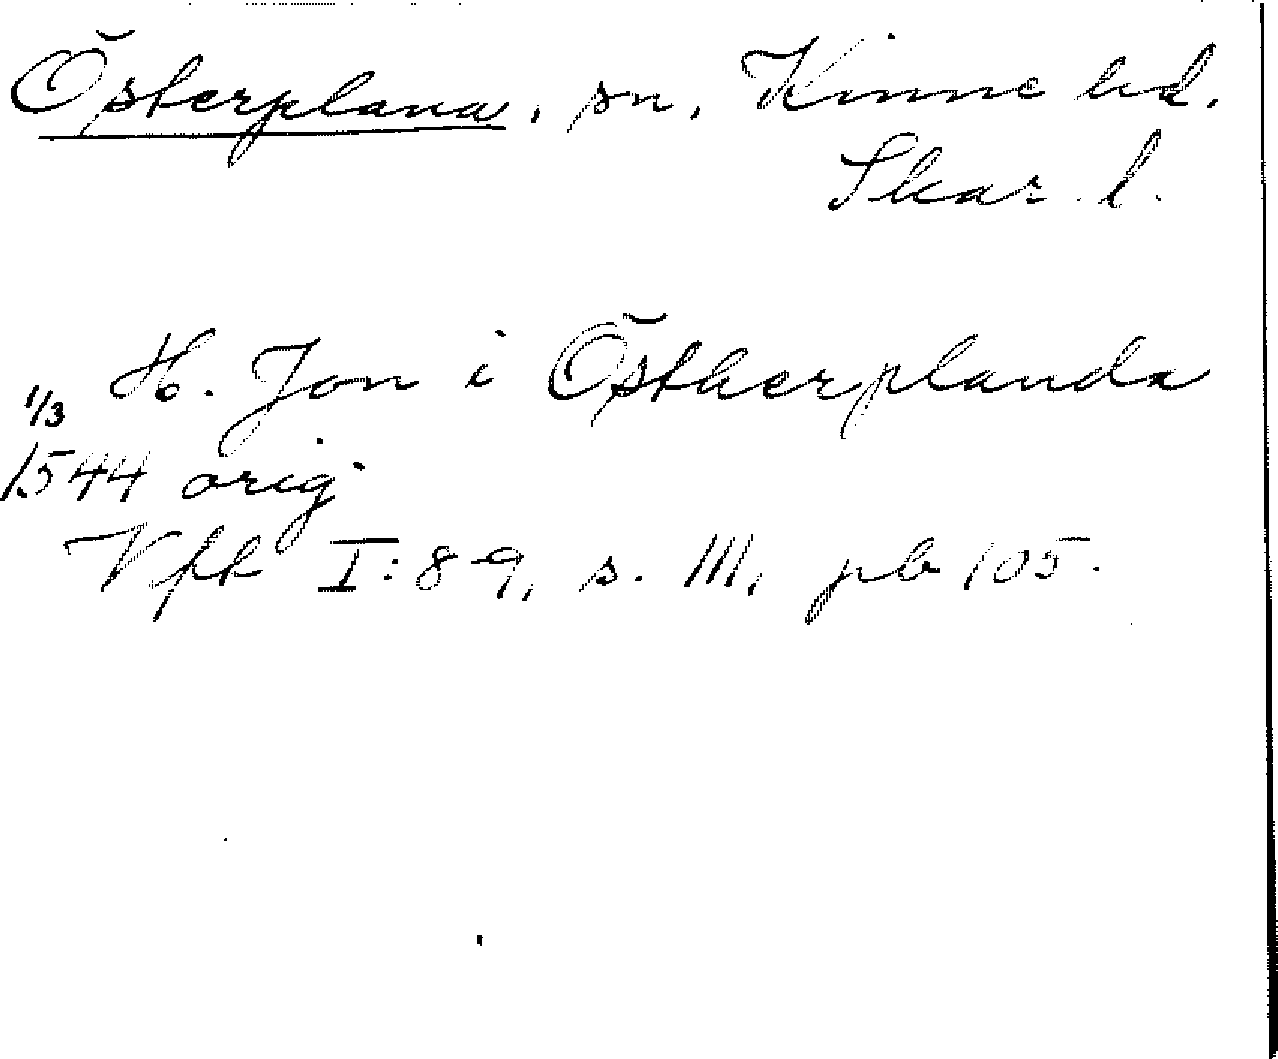 Österplana, sn, Kinne hd.
Skar. l.
H. Jon i Östherplanda
1/3
1544 orig.
Vfh I:8-9, s. 111, pb 105.